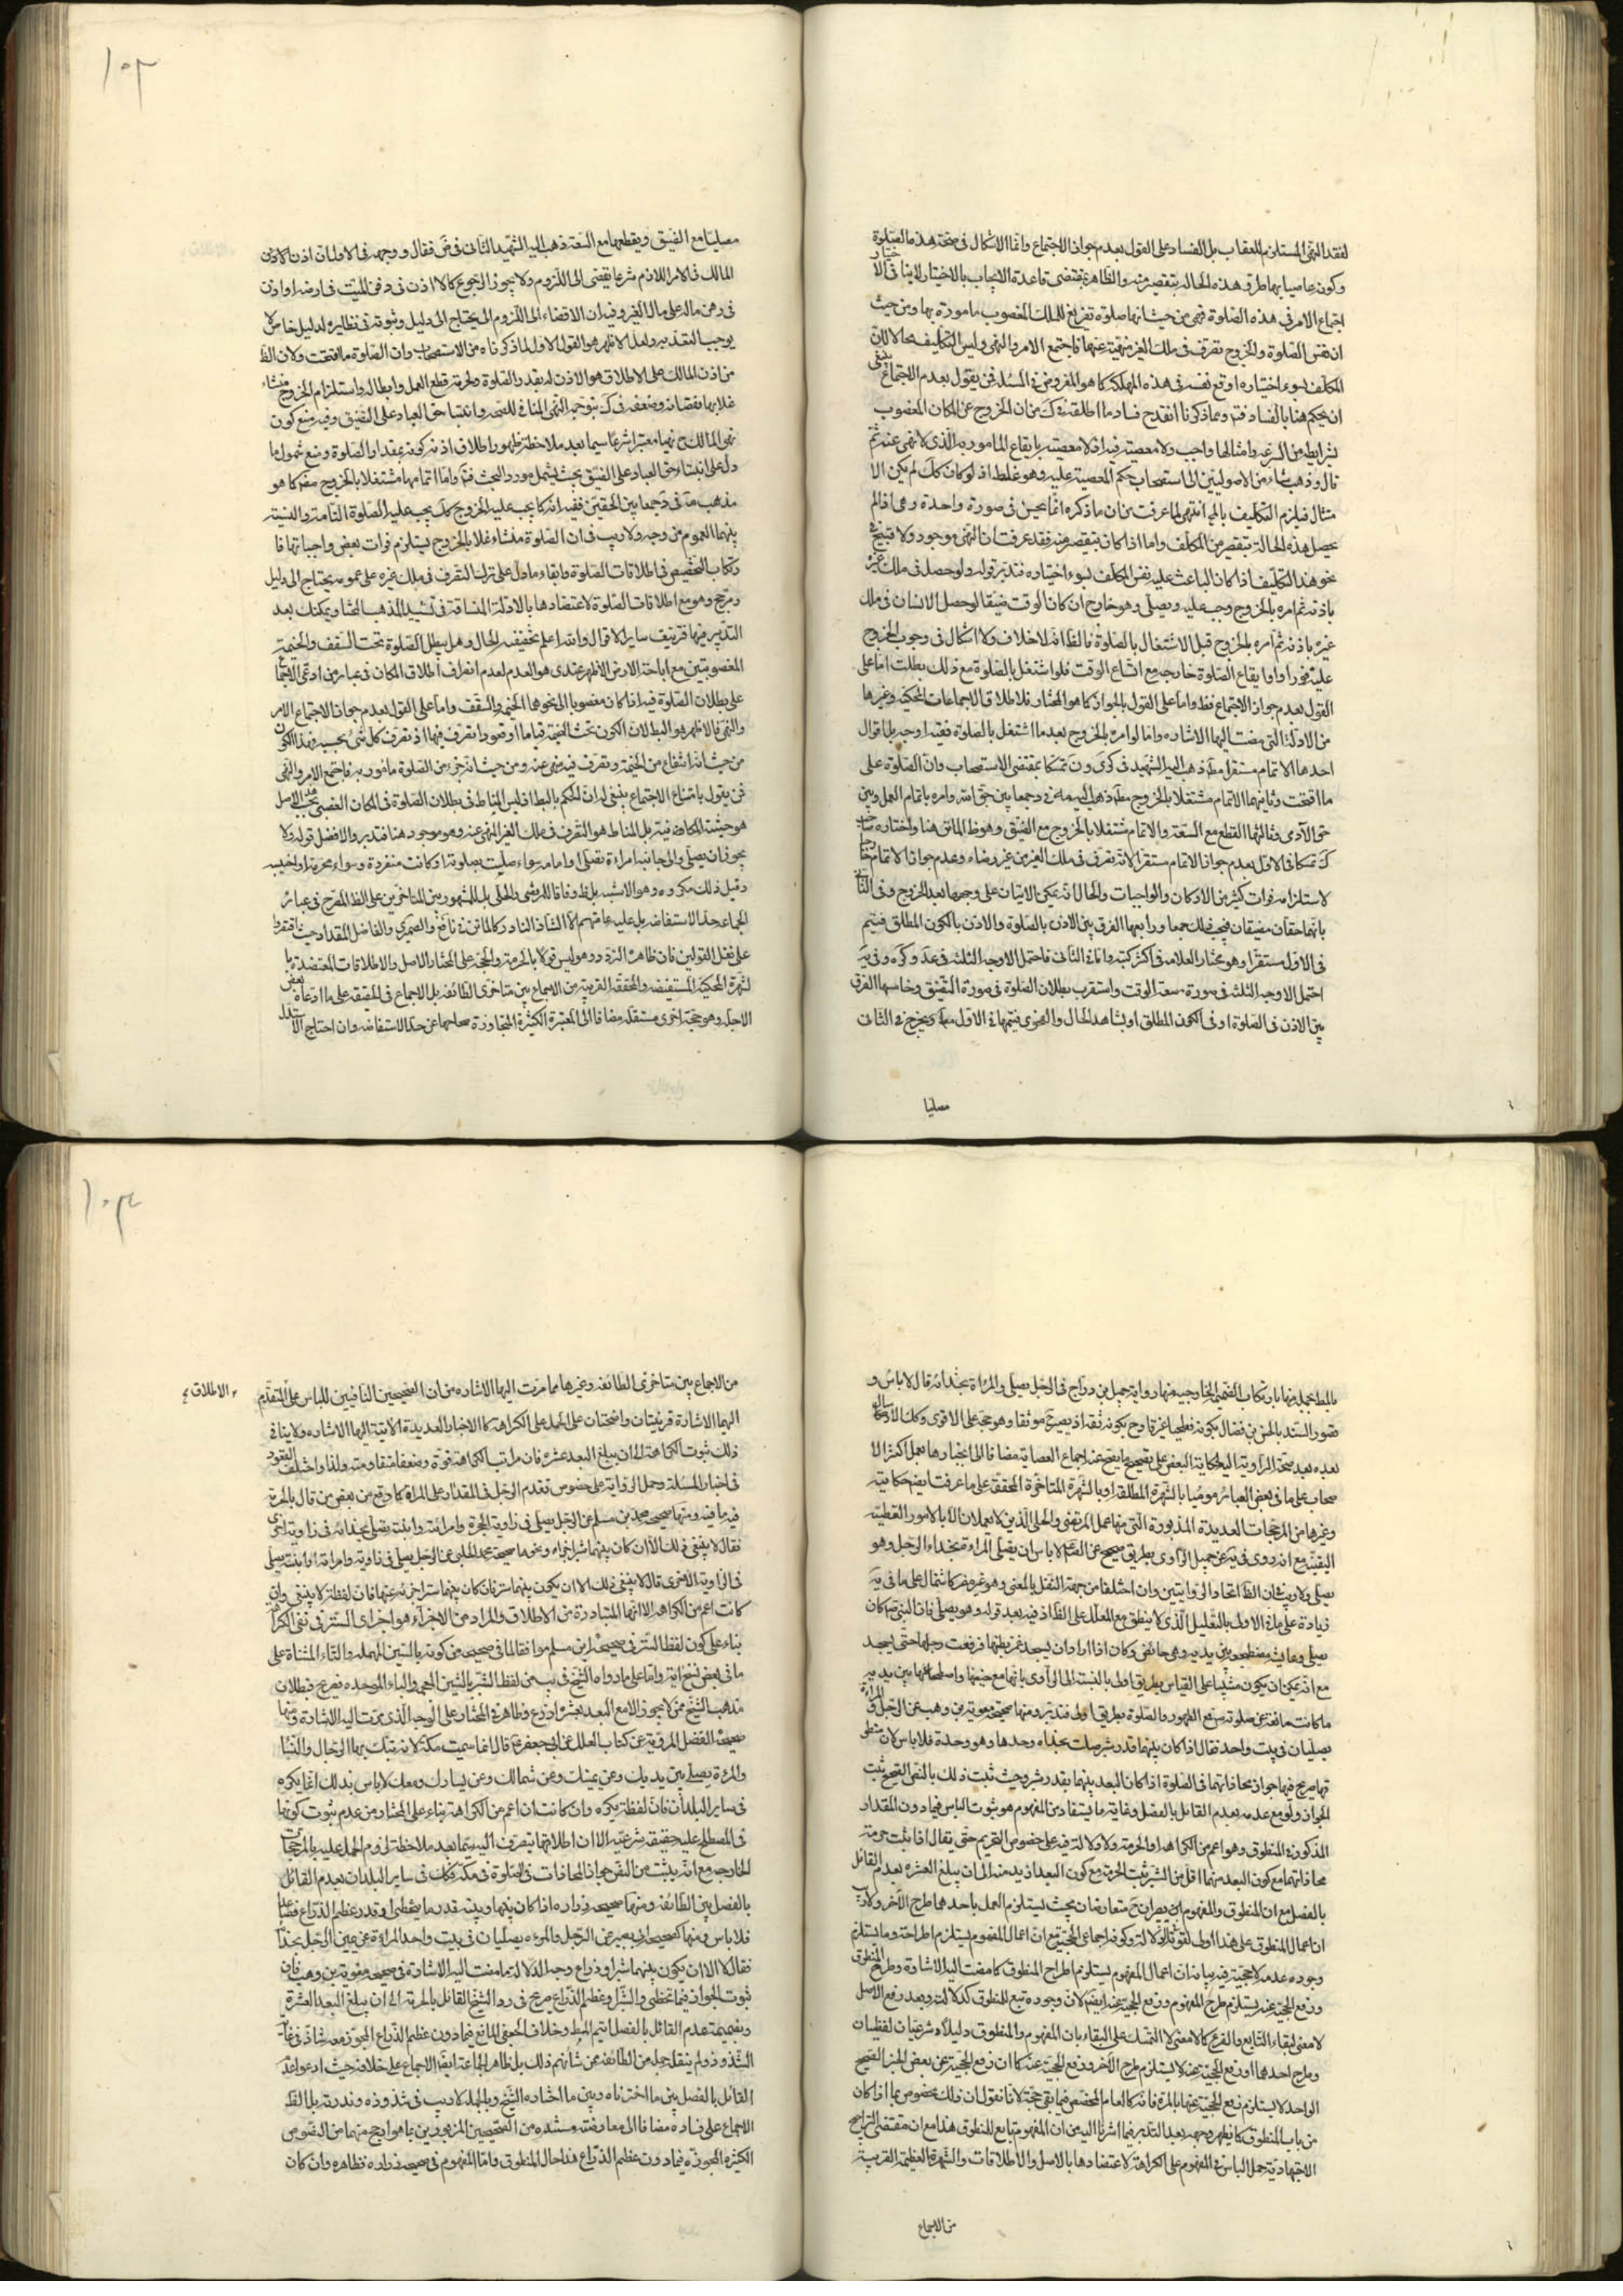 لفقد النهی المستلزم للعقاب بل الفساد علی القول بعدم جواز الاجتماع وانما الاشکال فی صحة هذه الصلوة
وکونه عاصیا بها طرو هذه الحالة بتقصیر منه والظاهر مقتضی قاعدة الایجاب بالاختیار لا ینافی الاختیار
اجتماع الامر فی هذه الصلوة فهی من حیث انها صلوة تفریغ للملک المغصوب مامورة بها ومن حیث
ان نفس الصلوة والخروج تصرف فی ملک الغیر منهیة عنها فاجتمع الامر والنهی ولیس التکلیف محالا لان
المکلف بسوء اختیاره اوقع نفسه فی هذه المهلکة کما هو المفروض فی المسئلة فمن یقول بعدم الاجتماع ینبغی
ان یحکم هنا بالفساد فتم ومما ذکرنا انقدح فساد ما اطلقه فی ک من ان الخروج عن المکان المغصوب
بشرایطه من السرعة وامثالها واجب ولا معصیة فیه اذ لا معصیة بایقاع المامور به الذی لا نهی عنه ثم
قال وذهب شاذ من الاصولیین الی استصحاب حکم المعصیة علیه وهو غلط اذ لو کان کک لم یکن الا
متثال فیلزم التکلیف بالمح انتهی لما عرفت من ان ما ذکره انما یحسن فی صورة واحدة وهی اذا لم
یحصل هذه الحالة بتقصیر من المکلف واما اذا کان بتقصیر منه فقد عرفت ان النهی موجود ولا قبح فی
نحو هذا التکلیف اذا کان الباعث علیه نفس المکلف بسوء اختیاره فتدبر قوله ولو حصل فی ملک غیره
باذنه ثم امره بالخروج وجب علیه ویصلی وهو خارج ان کان الوقت ضیقا لو حصل الانسان فی ملک
غیره باذنه ثم امره بالخروج قبل الاشتغال بالصلوة فالظ انه لا خلاف ولا اشکال فی وجوب الخروج
علیه فورا او ایقاع الصلوة خارجه مع اتساع الوقت فلو اشتغل بالصلوة مع ذلک بطلت اما علی
القول بعدم جواز الاجتماع فظ واما علی القول بالجواز کما هو المختار فلاطلاق الاجماعات المحکیة وغیرها
من الادلة التی مضت الیها الاشارة واما لو امره بالخروج بعد ما اشتغل بالصلوة ففیه اوجه بل اقوال
احدها الاتمام مستقرا مطه ذهب الیه الشهید فی کری ون تمسکا بمقتضی الاستصحاب وان الصلوة علی
ما افتتحت وثانیها الاتمام مشتغلا بالخروج مطه ذهب الیه فی د جمعا بین حق الله وامره باتمام العمل وبین
حق الآدمی وثالثها القطع مع السعة والاتمام مشتغلا بالخروج مع الضیق وهو ظ الماتن هنا واختاره صاحب
ک تمسکا فی الاول بعدم جواز الاتمام مستقرا لانه تصرف فی ملک الغیر من غیر رضاه وعدم جواز الاتمام خارجا
لاستلزامه فوات کثیر من الارکان والواجبات والحال انه یمکن الاتیان علی وجهها بعد الخروج وفی الثانی
بانهما حقان مضیقان فیجب فلک جمعا ورابعها الفرق بین الاذن بالصلوة والاذن بالکون المطلق فیتم
فی الاول مستقرا وهو مختار العلامه فی اکثر کتبه واما فی الثانی فاحتمل الاوجه الثلثه فی عد وکره وفی یه
احتمل الاوجه الثلثة فی صورة سعة الوقت واستقرب بطلان الصلوة فی صورة الضیق وخامسها الفرق
بین الاذن فی الصلوة او فی الکون المطلق او بشاهد الحال والفحوی فیتمها فی الاول مطه ویخرج فی الثانی
مصلیا
۱۰۳
مصلیا مع الضیق ویقطعها مع السعة ذهب الیه الشهید الثانی فی ض فقال ووجهه فی الاول ان اذن الاذن
المالک فی الامر اللازم شرعا یفضی الی اللزوم ولا یجوز الرجوع کالاذن فی دفن المیت فی ارضه او اذن
فی رهن ماله علی مال الغیر وفیه ان الافضاء الی اللزوم الی یحتاج الی دلیل وثبوته فی نظایره لدلیل خاص لا
یوجب التعدیة ولعل الاظهر هو القول الاول لما ذکرناه من الاستصحاب وان الصلوة ما افتتحت ولان الظ
من اذن المالک علی الاطلاق هو الاذن له بقدر الصلوة ولحرمة قطع العمل وابطاله واستلزام الخروج
دل علی انبساط حق العباد علی الضیق بحیث یشمل مورد البحث فتم واما اتمامها مشتغلا بالخروج مضر کما هو
بینهما العموم من وجه ولا ریب فی ان الصلوة متشاغلا بالخروج یستلزم فوات بعض واجباتها فا
رتکاب التخصیص فی اطلاقات الصلوة وابقاء ما دل علی ترک التصرف فی ملک غیره علی عمومه یحتاج الی دلیل
ومرجح وهو مع اطلاقات الصلوة لاعتضادها بالادلة المنساقة فی تشیید المذهب المختار ویمکنک بعد
التدبر فیها تزییف سایر الاقوال والله اعلم بحقیقة الحال وهل یبطل الصلوة تحت السقف والخیمة
المغصوبتین مع اباحة الارض الاظهر عندی هو العدم لعدم انصراف اطلاق المکان فی عبایر من ادعی الاجماع
علی بطلان الصلوة فیه اذا کان مغصوبا الی نحوها الخیمة والسقف واما علی القول بعدم جواز الاجتماع الامر
والنهی فالاظهر هو البطلان لان الکون تحت الخیمة قیاما او قعودا تصرف فیها اذ تصرف کل شیء بحسبه فهذا الکون
من حیث انه انتفاع من الخیمة وتصرف فیه منهی عنه ومن حیث انه جزء من الصلوة مامور به فاجتمع الامر والنهی
فمن یقول بامتناع الاجتماع ینبغی له ان یحکم بالبطلان
یجوز ان یصلی والی جانبه امراءة تصلی او امامه سواء صلیت بصلوته او کانت منفردة وسواء محرمة او اجنبیة
وقیل ذلک مکروه وهو الاشبه بل ظ وفاقا للمرتضی والحلی بل المشهور بین المتاخرین علی الظ المصرح فی عبائر
علی نقل القولین فان ظاهره التردد وهو لیس قولا بالحرمة والحجة علی المختار الاصل والاطلاقات المعتضدة با
لشهرة المحکیة المستفیضة والمحققة القریبة من الاجماع بین متاخری الطائفة بل الاجماع فی الحقیقة علی ما ادعاه بعض
الاجلة وهو حجة اخری مستقلة مضافا الی المعتبرة الکثیرة المتجاوزة صحاحها عن حد الاستفاضة وان احتاج الاستدلال
بالبط احیله منها بارتکاب الضمیمة الخارجیة منها روایة جمیل بن دراج فی الرجل یصلی والمراة بحذائه قال لا باس و
قصور السند بالحسن بن فضال بکونه فطحیا غیر قادح بکونه ثقة اذ یصیر ح موثقا وهو حجة علی الاقوی وکک الارسال
بعده بعد صحة الروایة الیه لحکایة البعض علی تصحیح ما یصح عنه اجماع العصابة مضافا الی انجبارها بعمل اکثر الا
صحاب علی ما فی بعض العبائر مومیا بالشهرة المطلقة او بالشهرة المتاخرة المحققة علی ما عرفت ایضه حکایته
وغیرها من المرجحات العدیدة المذبورة التی منها عمل المرتضی والحلی الذین لا یعملان الا بالامور القطعیة
الیقینیة مع انه روی فی یه عن جمیل الراوی بطریق صحیح عن الصادق لا باس ان یصلی المراءة بحذاء الرجل وهو
یصلی ولا ریب فی ان الظ اتحاد الروایتین وان اختلفا من جهة النقل بالمعنی وهو غیر مضر کاشتمال علی ما فی یه
زیادة علی هذه الاولی بالتعلیل الذی لا ینطبق مع المعلل علی الظ اذ فیه بعد قوله وهو یصلی فان النبی ص کان
یصلی وعایشة مضطجعة بین یدیه وهی حائض وکان اذا اراد ان یسجد غمز رجلیها فرفعت رجلیها حتی یسجد
مع انه یمکن ان یکون متنبها علی القیاس بطریق اولی بالنسبة الی الراوی بانها مع حیضها واضطجاعها بین یدیه
ما کانت مانعة عن صلوته ص فمع الطهور والصلوة بطریق اولی فتدبر ومنها صحیحة معویة بن وهب عن الرجل والمراءة
یصلیان فی بیت واحد فقال اذا کان بینهما قدر شبر صلت بحذاه وحدها وهو وحده فلا باس لان منطو
قها صریح فیها جواز محاذاتهما فی الصلوة اذا کان البعد بینهما بقدر شبر وحیث ثبت ذلک بالنص الصحیح ثبت
الجواز ولو مع عدمه بعدم القائل بالفصل وغایة ما یستفاد من المفهوم هو ثبوت الباس فیما دون المقدار
المذکور فی المنطوق وهو اعم من الکراهة او الحرمة ولا دلالة فیه علی خصوص التحریم حتی یقال اذا ثبت حرمة
محاذاتهما مع کون البعد منهما اقل من الشبر ثبت الحرمة مع کون البعد ازید منه الی ان یبلغ العشرة بعدم القائل
بالفصل مع ان المنطوق والمفهوم اذن یصیران ح متعارضان بحیث یستلزم العمل باحدهما طرح الآخر ولا ریب
وجوده عدمه لا حجیة فیه بیانه ان اعمال المفهوم یستلزم اطراح المنطوق کما مضت الیه الاشارة وطرح المنطوق
ورفع الحجیة عنه یستلزم طرح المفهوم ورفع الحجیة عنه ایضه لان وجوده تبع للمنطوق کدلالته وبعد رفع الاصل
لا معنی لبقاء التابع والفرع کالا معنی لا التمسک علی البقاء بان المفهوم والمنطوق دلیلان شرعیان لفظیان
وطرح احدهما او رفع الحجیة عنه لا یستلزم طرح الآخر ورفع الحجیة عنه کما ان رفع الحجیة عن بعض الخبر الصحیح
الواحد لا یستلزم رفع الحجیة عنها بالمرة فانه کالعام المخصص فیما بقی حجة لانا نقول ان ذلک مخصوص بما اذا کان
من باب المنطوق کما یظهر وجهه بعد التدبر فیما اشرنا الیه من ان المفهوم تابع للمنطوق هذا مع ان مقتضی التراجیح
الاجتهادیة حمل الباس فی المفهوم علی الکراهة لاعتضادها بالاصل والاطلاقات والشهرة العظیمة القریبة
من الاجماع
۱۰۴
من الاجماع بین متاخری الطائفة وغیرها مما مرت الیها الاشاره من ان الصحیحین النافیین للباس علی المتقدم
الاطلاق
الیهما الاشارة قرینتان واضحتان علی الحمل علی الکراهة کالاخبار العدیدة الآتیة الیها الاشاره ولا ینافی
ذلک ثبوت الکراهة الی ان یبلغ البعد عشره فان مراتب الکراهة قوة وضعفا متفاوتة ولذا اختلف القیود
فی اخبار المسئلة وحمل الروایة علی خصوص تقدم الرجل فی المقدار علی المراة کما وقع من بعض من قال بالحرمة
فیه ما فیه ومنها صحیحة محمد بن مسلم عن الرجل یصلی فی زاویة الحجرة وامراته وابنته تصلی بحذائه فی زاویة اخری
فقال لا ینبغی ذلک الا ان کان بینهما شبر اجزاه ونحوها صحیحة محمد الحلبی عن الرجل یصلی فی زاویة وامراته او ابنته یصلی
فی الزاویة الاخری قال لا ینبغی ذلک الا ان یکون بینهما ستر فان کان بینهما ستر اجزءه عنها فان لفظة لا ینبغی وان
کانت اعم من الکراهة الا انها المتبادرة من الاطلاق والمراد من الاجزاء هو اجزاء الستر فی نفی الکراهة
بناء علی کون لفظ الستر فی صحیحة ابن مسلم موافقا لما فی صحیحه من کونه بالسین المهمله والتاء المثناة علی
ما فی بعض نسخ اته واما علی ما رواه الشیخ فی یب من لفظ الشبر بالشین المعجم والباء الموحده فصریح فی بطلان
مذهب الشیخ ممن لا یجوز الا مع البعد بعشرة اذرع وظاهرة فی المختار علی الوجه الذی مرت الیه الاشارة ومنها
صحیحة الفضل المرویة عن کتاب العلل عن ابی جعفر قال انما سمیت مکة بکة لانه تبتک بها الرجال والنساء
والمرءة یصلی بین یدیک وعن یمینک وعن شمالک وعن یسارک ومعک لا باس بذلک انما یکره
فی سایر البلدان فان لفظة یکره وان کانت ان اعم من الکراهة بناء علی المختار ومن عدم ثبوت کونها
فی المصطلح علیه حقیقة شرعیة الا ان اطلاقها ینصرف الیه سیما بعد ملاحظة لزوم الحمل علیه بالمرجحات
الخارجة مع انه یثبت من النص جواز المحاذات فی الصلوة فی مکة فکک فی سایر البلدان بعدم القائل
بالفصل بین الطائفة ومنها صحیحة زراره اذا کان بینها وبینه قدر ما یتخطی او قدر عظم الذراع فصاعدا
فلا باس ومنها کصحیحة ابی بصیر عن الرجل والمرءة یصلیان فی بیت واحد المراءة عن یمین الرجل بحذاه
فقال لا الا ان یکون بینهما شبر او ذراع وجه الدلالة ما مضت الیه الاشارة فی صحیحة معویة بن وهب فان
ثبوت الجواز فیما تخطی والشبر او عظم الذراع صریح فی رد الشیخ القائل بالحرمة الی ان یبلغ البعد العشرة
وبضمیمة عدم القائل بالفصل ایتم المط وخلاف الجعفی المانع فیما دون عظم الذراع المجوز معه شاذ فی غایة
الشذوذ ولم ینقله جل من الطائفة ممن شانهم ذلک بل ظاهر الجماعة ایضا الاجماع علی خلافه حیث ادعوا عدم
القائل بالفصل بین ما اخترناه وبین ما اختاره الشیخ وبالجملة لا ریب فی شذوذه وندرته بل الظ
الاجماع علی فساده مضافا الی معارضة مستنده من الصحیحین المزبورین بما هو ارجح منهما من النصوص
الکثیره المجوزه فیما دون عظم الذراع هذا حال المنطوق واما المفهوم فی صحیحه زراره فظاهره وان کان